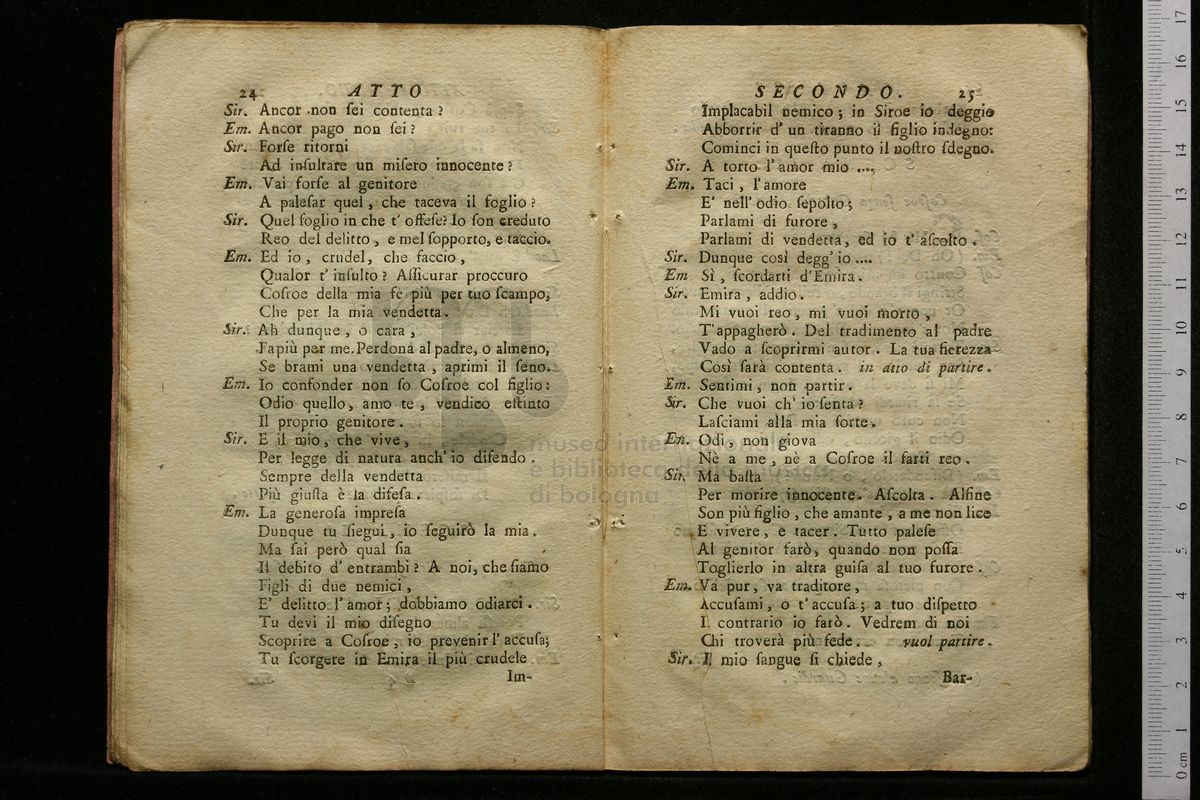 24 ATTO
Sir. Ancor non ſei contenta?
Em. Ancor pago non ſei?
Sir. Forſe ritorni
Ad inſultare un miſero innocente?
Em. Vai forſe al genitore
A paleſar quel, che taceva il foglio?
Sir. Quel foglio in che t' offeſe? Io ſon creduto
Reo del delitto, e mel ſopporto, e taccio.
Em. Ed io, crudel, che faccio,
Qualor t' inſulto? Aſſicurar proccuro
Coſroe della mia fè più per tuo ſcampo,
Che per la mia vendetta.
Sir. Ah dunque, o cara,
Fa più per me. Perdona al padre, o almeno,
Se brami una vendetta, aprimi il ſeno.
Em. Io confonder non ſo Coſroe col figlio:
Odio quello, amo te, vendico eſtinto
Il proprio genitore.
Sir. E il mio, che vive,
Per legge di natura anch' io difendo.
Sempre della vendetta
Più giuſta è la difeſa.
Em. La generoſa impreſa
Dunque tu ſiegui, io ſeguirò la mia.
Ma ſai però qual ſia
Il debito d' entrambi? A noi, che ſiamo
Figli di due nemici,
E' delitto l' amor; dobbiamo odiarci.
Tu devi il mio diſegno
Scoprire a Coſroe, io prevenir l' accuſa;
Tu ſcorgere in Emira il più crudele
Im-
SECONDO. 25
Implacabil nemico; in Siroe io deggio
Abborrir d' un tiranno il figlio indegno:
Cominci in queſto punto il noſtro ſdegno.
Sir. A torto l' amor mio ....
Em. Taci, l' amore
E' nell' odio ſepolto;
Parlami di furore,
Parlami di vendetta, ed io t' aſcolto.
Sir. Dunque così degg' io ....
Em Sì, ſcordarti d' Emira.
Sir. Emira, addio.
Mi vuoi reo, mi vuoi morto,
T' appagherò. Del tradimento al padre
Vado a ſcoprirmi autor. La tua fierezza
Così ſarà contenta. in atto di partire.
Em. Sentimi, non partir.
Sir. Che vuoi ch' io ſenta?
Laſciami alla mia ſorte.
Em. Odi, non giova
Nè a me, nè a Coſroe il farti reo.
Sir. Ma baſta
Per morire innocente. Aſcolta. Alfine
Son più figlio, che amante, a me non lice
E vivere, e tacer. Tutto paleſe
Al genitor farò, quando non poſſa
Toglierlo in altra guiſa al tuo furore.
Em. Va pur, va traditore,
Accuſami, o t' accuſa; a tuo diſpetto
Il contrario io farò. Vedrem di noi
Chi troverà più fede. vuol partire.
Sir. Il mio ſangue ſi chiede,
Bar-
museo internazionale
e biblioteca della musica
di bologna
0 cm 1 2 3 4 5 6 7 8 9 10 11 12 13 14 15 16 17